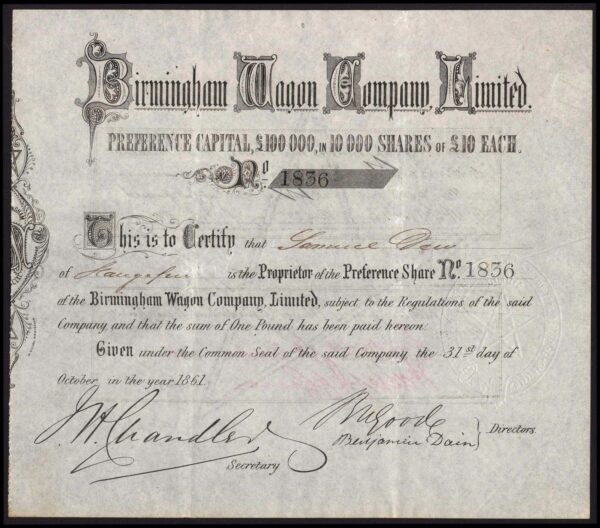 Birmingham Wagon Company, Limited.
PREFERENCE CAPITAL, £100 000, IN 10 000 SHARES OF £10 EACH.
No. 1836
This is to Certify that Samuel
of is the Proprietor of the Preference Share No. 1836
of the Birmingham Wagon Company, Limited, subject to the Regulations of the said
Company, and that the sum of One Pound has been paid hereon:
Given under the Common Seal of the said Company the 31st day of
October, in the year 1861.
Chandler
Secretary
Benjamin Dain } Directors.